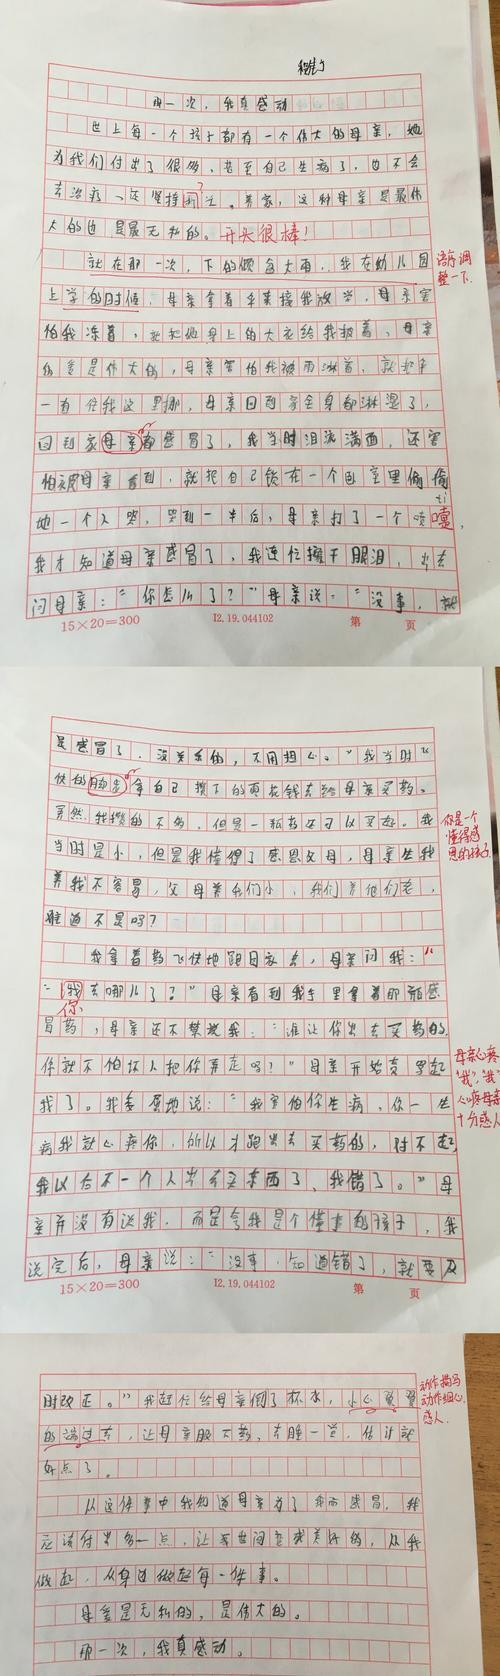 那一次，我真感动
世上每一个孩子都有一个伟大的母亲，她
为我们付出了很多，甚至自己生病了，也不会
去治病、还坚持
养家，这种母亲是最伟
大的也是最无私的。开头很棒！
就在那一次，下的倾盆大雨，我在幼儿园
语序调
整一下.
上学的时候，母亲拿着伞来接我放学，母亲害
怕我冻着，就把他身上的大衣给我披着，母亲
的爱是伟大的，母亲害怕我被雨淋着，就把伞
一直往我这里挪，母亲回到家全身都淋湿了，
回到家母亲都感冒了，我当时泪流满面，还害
怕被母亲看到，就把自己锁在一个卧室里偷偷
ti
地一个人哭，哭到一半后，母亲打了一个喷嚏，
我才知道母亲感冒了，我连忙擦干眼泪，出去
问母亲：“你怎么了？”母亲说：“没事，就
15×20=300
12.19.044102
第 页
是感冒了，没关系的，不用担心。”我当时
快的
拿自己攒下的零花钱去给母亲买药。
虽然我攒的不多，但是一瓶药还可以买好。我
你是一个
懂得感
恩的孩子
当时是小，但是我懂得了感恩父母，母亲生我
养我不容易，父母养我们小，我们养他们老，
难道不是吗？
我拿着药飞快地跑回家去，母亲问我：“
“我去哪儿了？”母亲看到我手里拿着那瓶感
你
冒药，母亲还不禁说我：“谁让你出去买药的，
你就不怕坏人把你弄走吗？”母亲开始责骂起
母亲心疼
“我”，“我”
心疼母亲
十分感人
我了。我委屈地说：“我害怕你生病，你一生
病我就心疼你，所以才跑出去买药的，对不起，
我以后不一个人出去买东西了，我错了。”母
亲并没有说我，而是夸我是个懂事的孩子，我
说完后，母亲说：“没事，知道错了，就要及
15×20=300
12.19.044102
第 页
时改正。”我赶忙给母亲倒了杯水，小心翼翼
动作描写
动作细心，
感人.
的端过去，让母亲服下药，去睡一觉，估计就
好点了。
从这件事中我知道母亲为了我而感冒，我
应该付出多一点，让
世间变成美好的，从我
做起，从身边做起每一件事。
母爱是无私的，是伟大的。
那一次，我真感动。